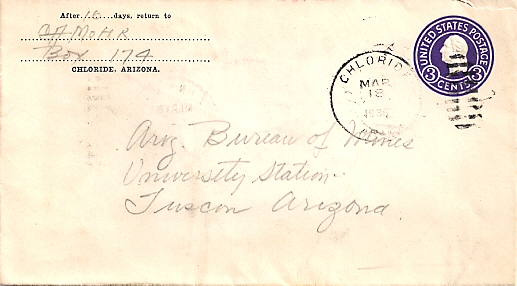 After 10 days, return to
CH MOHR
Box 174
CHLORIDE, ARIZONA.
UNITED STATES POSTAGE
3 CENTS 3
CHLORIDE
MAR
18
Ariz. Bureau of Mines
University Station
Tuscon Arizona.